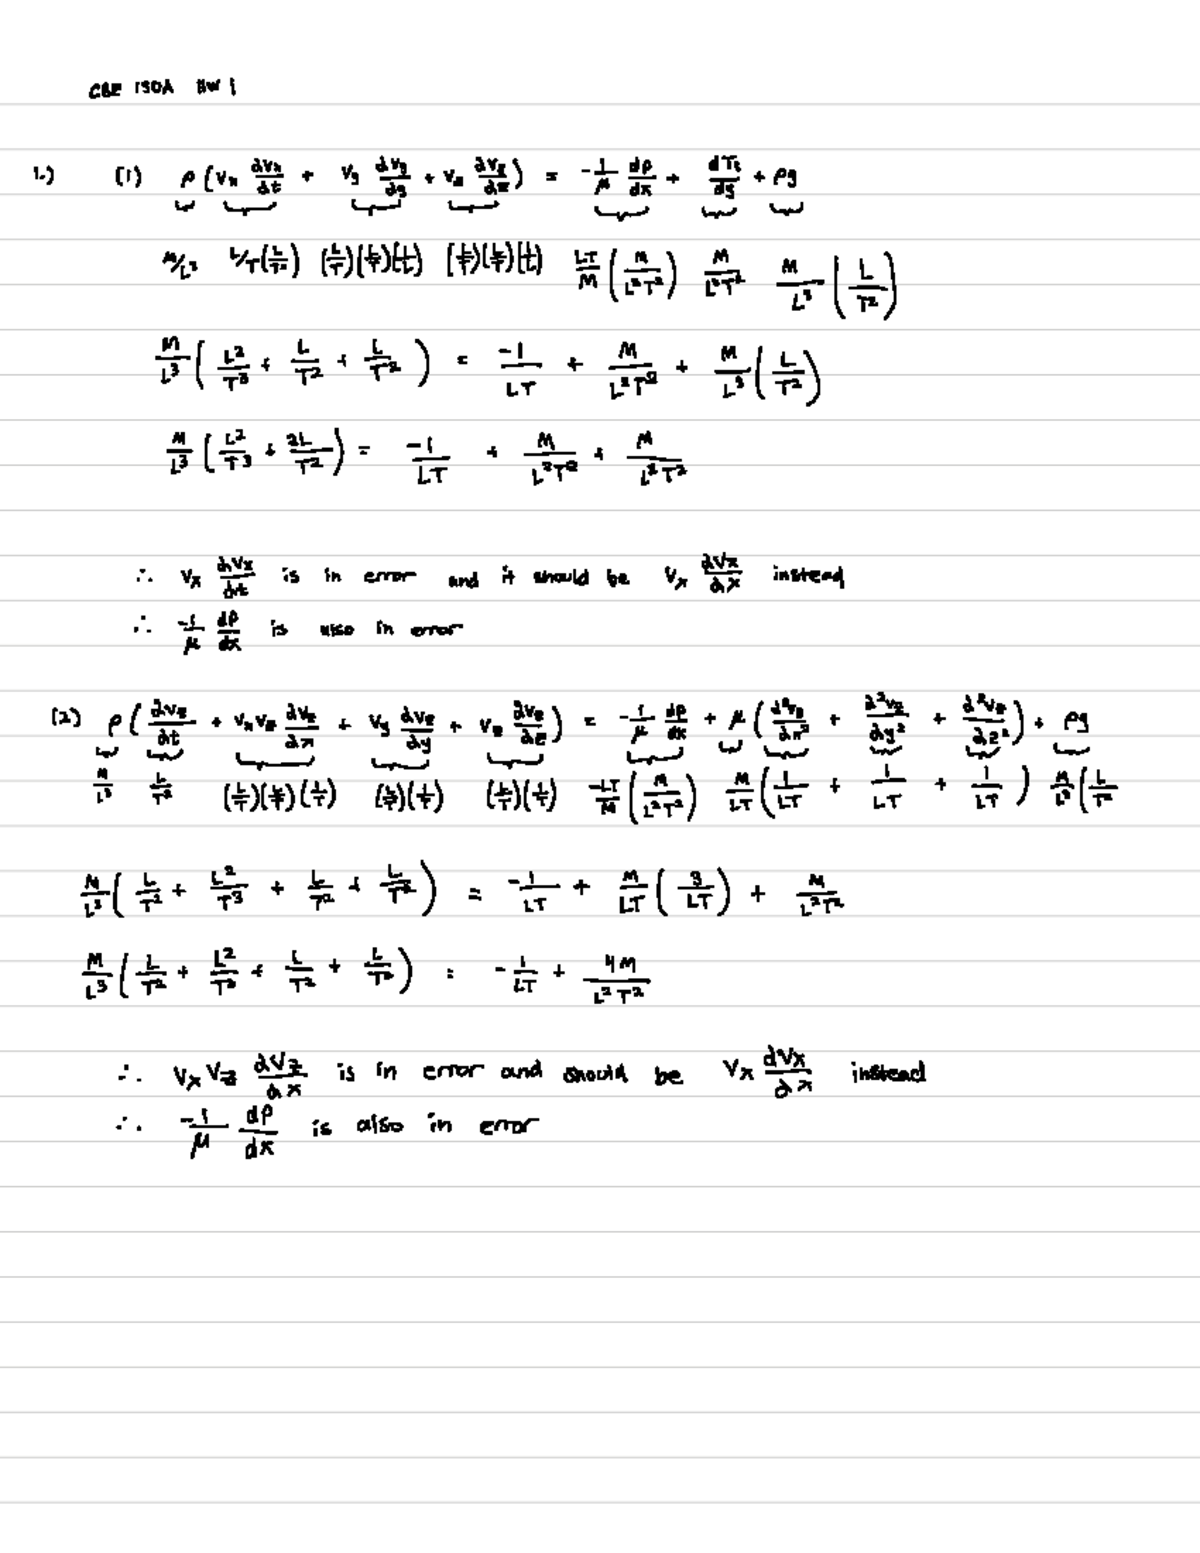 CBE 150A HW 1
1.) (1) ρ (Vx ∂Vx/∂t + Vy ∂Vy/∂y + Vz ∂Vz/∂z) = -1/μ dp/dx + dτ/dy + ρg
M/L³ L/T(L/T²) (L/T)(L/T)(1/L) (L/T)(L/T)(1/L) LT/M (M/L²T²) M/L²T² M/L³ (L/T²)
M/L³ (L²/T³ + L/T² + L/T²) = -1/LT + M/L²T² + M/L³ (L/T²)
M/L³ (L²/T³ + 2L/T²) = -1/LT + M/L²T² + M/L²T²
∴ Vx ∂Vx/∂t is in error and it should be Vx ∂Vx/∂x instead
∴ -1/μ dp/dx is also in error
(2) ρ (∂Vz/∂t + VxVz ∂Vz/∂x + Vy ∂Vz/∂y + Vz ∂Vz/∂z) = -1/μ dp/dx + μ (∂²Vz/∂x² + ∂²Vz/∂y² + ∂²Vz/∂z²) + ρg
M/L³ L/T² (L/T)(L/T)(1/T) (L/T)(1/T) (L/T)(1/T) -LT/M (M/L²T²) M/LT (1/LT + 1/LT + 1/LT) M/L³ (L/T²
M/L³ (L/T² + L²/T³ + L/T² + L/T²) = -1/LT + M/LT (3/LT) + M/L²T²
M/L³ (L/T² + L²/T³ + L/T² + L/T²) = -1/LT + 4M/L²T²
∴ VxVz ∂Vz/∂x is in error and should be Vx ∂Vx/∂x instead
∴ -1/μ dp/dx is also in error